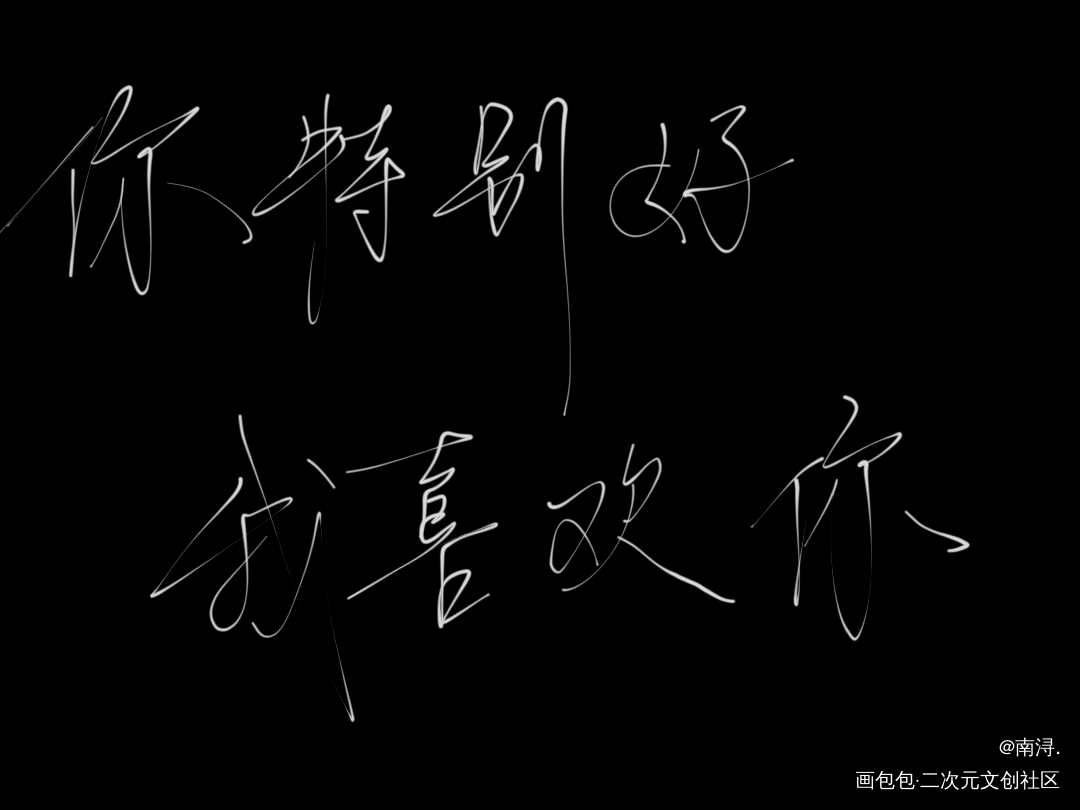 你特别好
我喜欢你
@南浔.
画包包·二次元文创社区